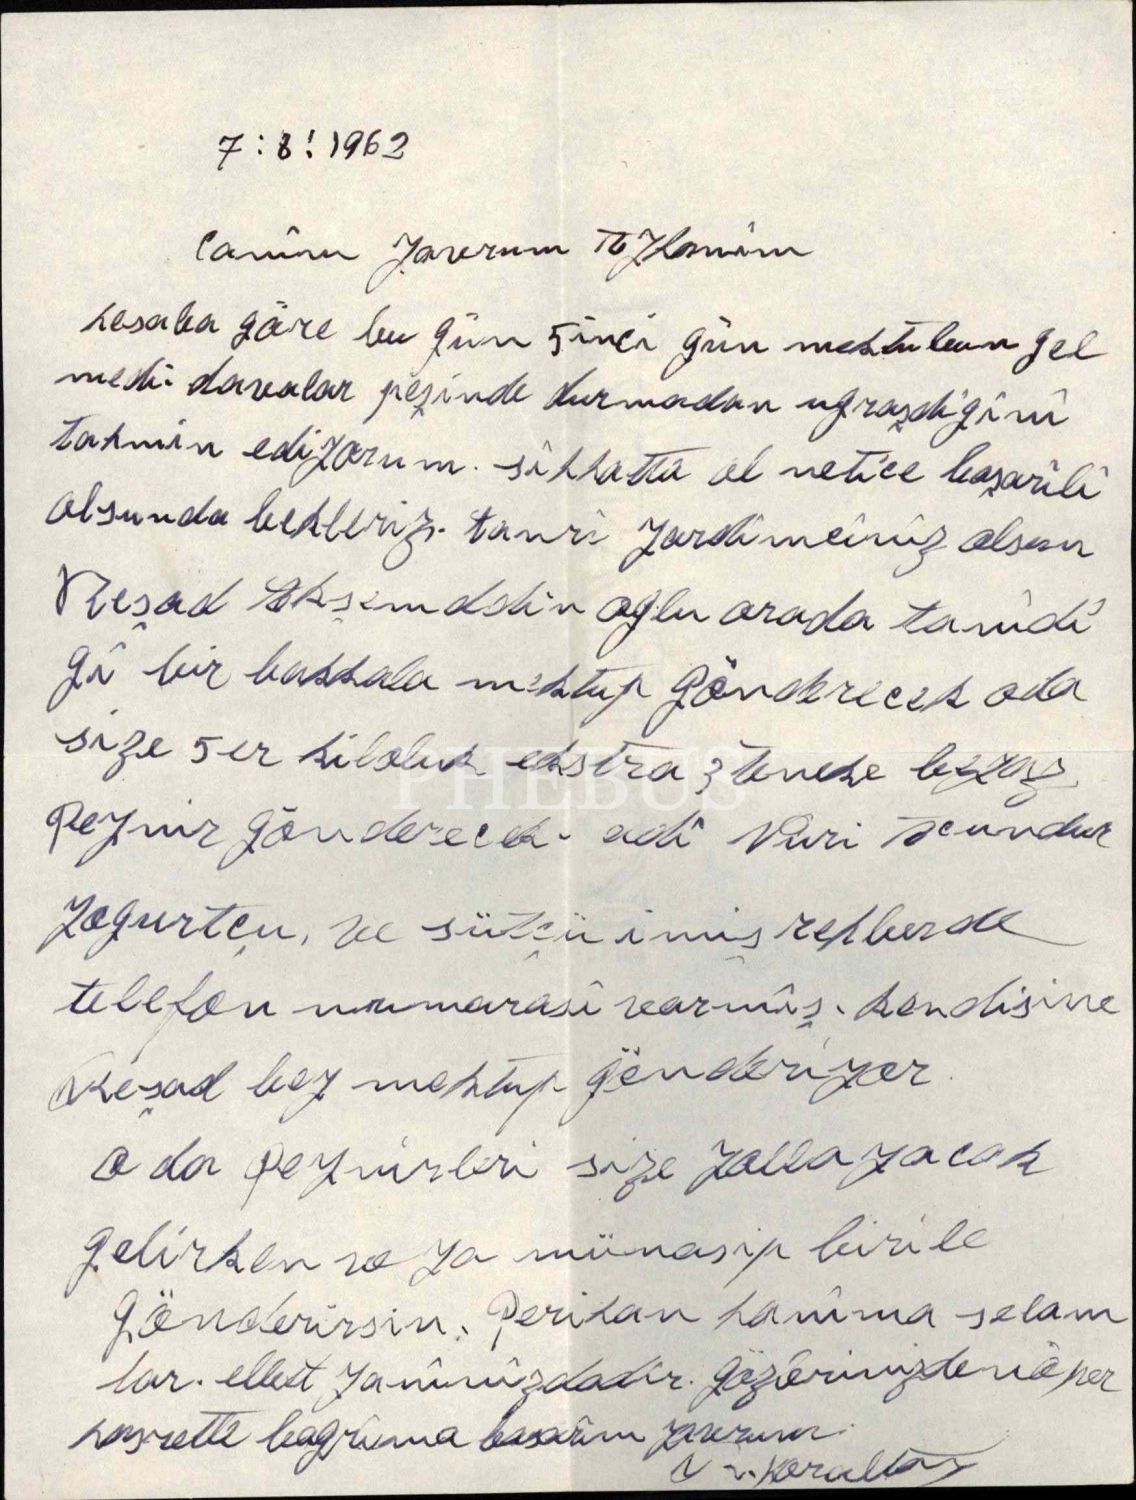 7:8:1962
Canîm Yavrum Ayhanîm
hesaba göre bu gün 5inci gün mektubun gel
medi. davalar peşinde durmadan ugraşdîgînî
tahmin ediyorum. sîhhatta ol netice başarîlî
olsunda bekleriz. tanrî yardîmcînîz olsun
Reşad Akşemddin oglu orada tanîdî
gî bir bakkala mektup gönderecek oda
size 5er kiloluk ekstra 3 teneke beyaz
Peynir gönderecek. adî Nuri
PHEBUS
Yogurtçu, ve sütçü imiş rehberde
telefon numarasî varmîş. kendisine
Reşad bey mektup gönderiyor
o da peynirleri size yollayacak
gelirken ve ya münasip biri ile
gönderirsin. Perihan hanîma selam
lar. elbet yanînîzdadîr. gözlerinizden öper
hasretle bagrîma basarîm yavrum.
Koraltan